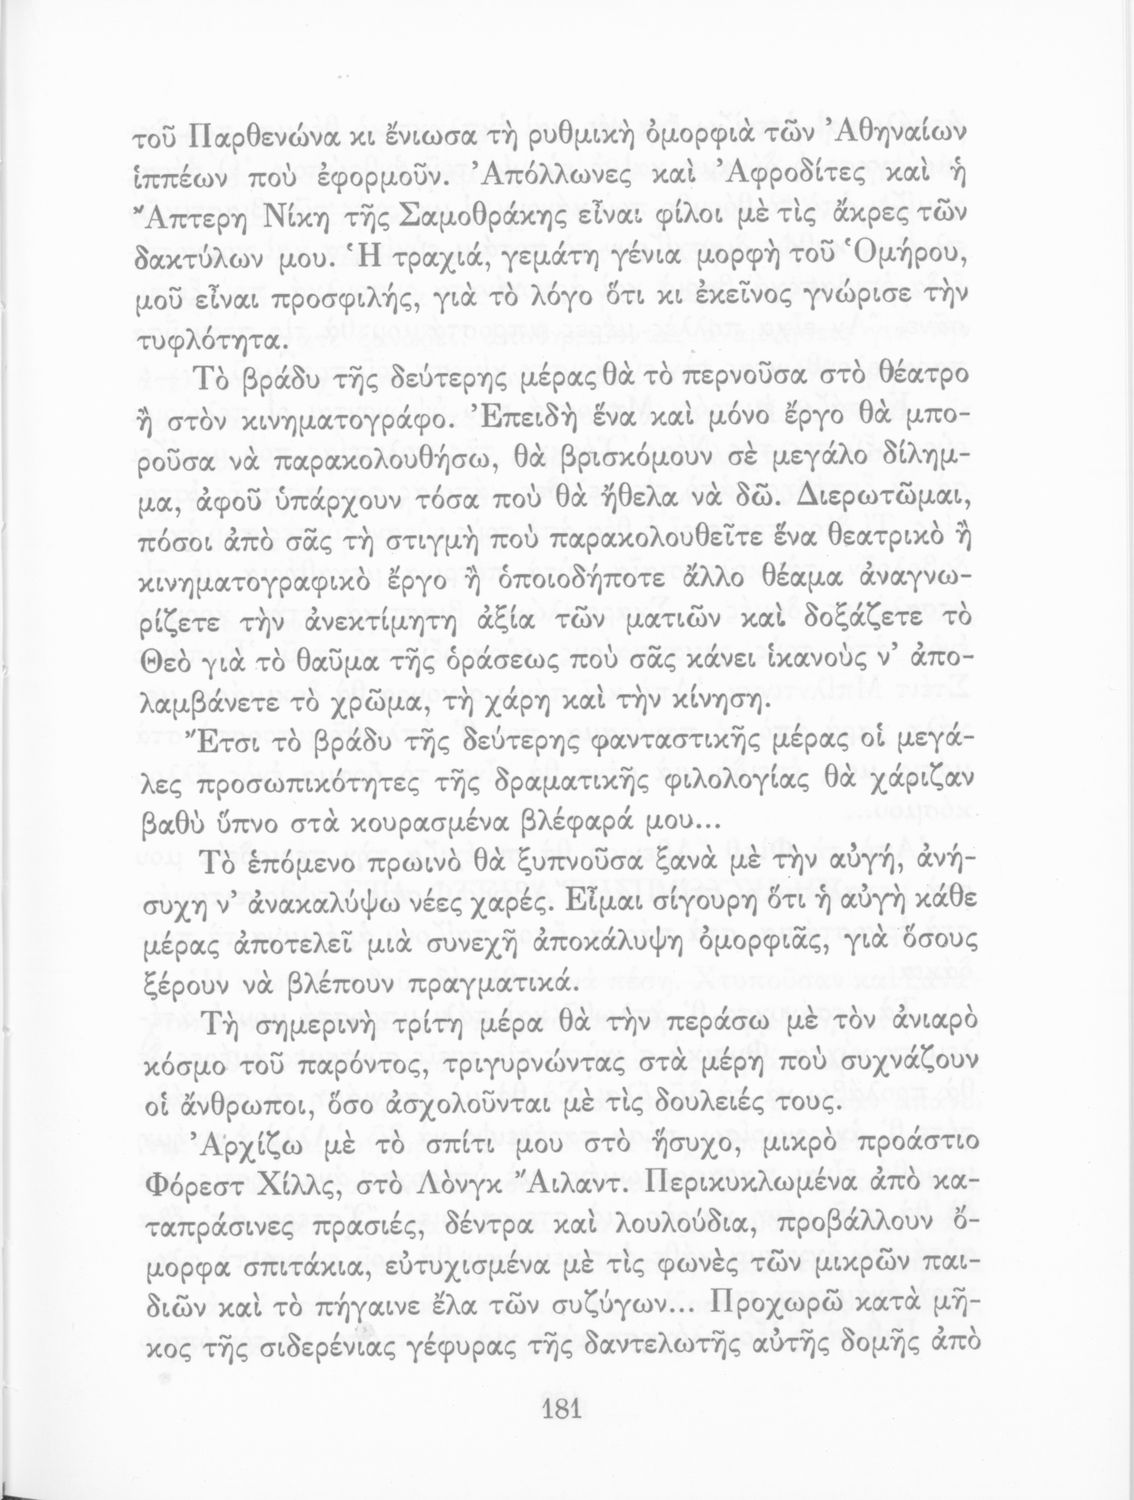 τοῦ Παρθενώνα κι ἔνιωσα τὴ ρυθμικὴ ὀμορφιὰ τῶν Ἀθηναίων
ἱππέων ποὺ ἐφορμοῦν. Ἀπόλλωνες καὶ Ἀφροδίτες καὶ ἡ
Ἄπτερη Νίκη τῆς Σαμοθράκης εἶναι φίλοι μὲ τὶς ἄκρες τῶν
δακτύλων μου. Ἡ τραχιά, γεμάτη γένια μορφὴ τοῦ Ὁμήρου,
μοῦ εἶναι προσφιλής, γιὰ τὸ λόγο ὅτι κι ἐκεῖνος γνώρισε τὴν
τυφλότητα.
Τὸ βράδυ τῆς δεύτερης μέρας θὰ τὸ περνοῦσα στὸ θέατρο
ἢ στὸν κινηματογράφο. Ἐπειδὴ ἕνα καὶ μόνο ἔργο θὰ μπο-
ροῦσα νὰ παρακολουθήσω, θὰ βρισκόμουν σὲ μεγάλο δίλημ-
μα, ἀφοῦ ὑπάρχουν τόσα ποὺ θὰ ἤθελα νὰ δῶ. Διερωτῶμαι,
πόσοι ἀπὸ σᾶς τὴ στιγμὴ ποὺ παρακολουθεῖτε ἕνα θεατρικὸ ἢ
κινηματογραφικὸ ἔργο ἢ ὁποιοδήποτε ἄλλο θέαμα ἀναγνω-
ρίζετε τὴν ἀνεκτίμητη ἀξία τῶν ματιῶν καὶ δοξάζετε τὸ
Θεὸ γιὰ τὸ θαῦμα τῆς ὁράσεως ποὺ σᾶς κάνει ἱκανοὺς ν’ ἀπο-
λαμβάνετε τὸ χρῶμα, τὴ χάρη καὶ τὴν κίνηση.
Ἔτσι τὸ βράδυ τῆς δεύτερης φανταστικῆς μέρας οἱ μεγά-
λες προσωπικότητες τῆς δραματικῆς φιλολογίας θὰ χάριζαν
βαθὺ ὕπνο στὰ κουρασμένα βλέφαρά μου...
Τὸ ἑπόμενο πρωινὸ θὰ ξυπνοῦσα ξανὰ μὲ τὴν αὐγή, ἀνή-
συχη ν’ ἀνακαλύψω νέες χαρές. Εἶμαι σίγουρη ὅτι ἡ αὐγὴ κάθε
μέρας ἀποτελεῖ μιὰ συνεχῆ ἀποκάλυψη ὀμορφιᾶς, γιὰ ὅσους
ξέρουν νὰ βλέπουν πραγματικά.
Τὴ σημερινὴ τρίτη μέρα θὰ τὴν περάσω μὲ τὸν ἀνιαρὸ
κόσμο τοῦ παρόντος, τριγυρνώντας στὰ μέρη ποὺ συχνάζουν
οἱ ἄνθρωποι, ὅσο ἀσχολοῦνται μὲ τὶς δουλειές τους.
Ἀρχίζω μὲ τὸ σπίτι μου στὸ ἥσυχο, μικρὸ προάστιο
Φόρεστ Χίλλς, στὸ Λὸνγκ Ἄιλαντ. Περικυκλωμένα ἀπὸ κα-
ταπράσινες πρασιές, δέντρα καὶ λουλούδια, προβάλλουν ὄ-
μορφα σπιτάκια, εὐτυχισμένα μὲ τὶς φωνὲς τῶν μικρῶν παι-
διῶν καὶ τὸ πήγαινε ἔλα τῶν συζύγων... Προχωρῶ κατὰ μῆ-
κος τῆς σιδερένιας γέφυρας τῆς δαντελωτῆς αὐτῆς δομῆς ἀπὸ
181